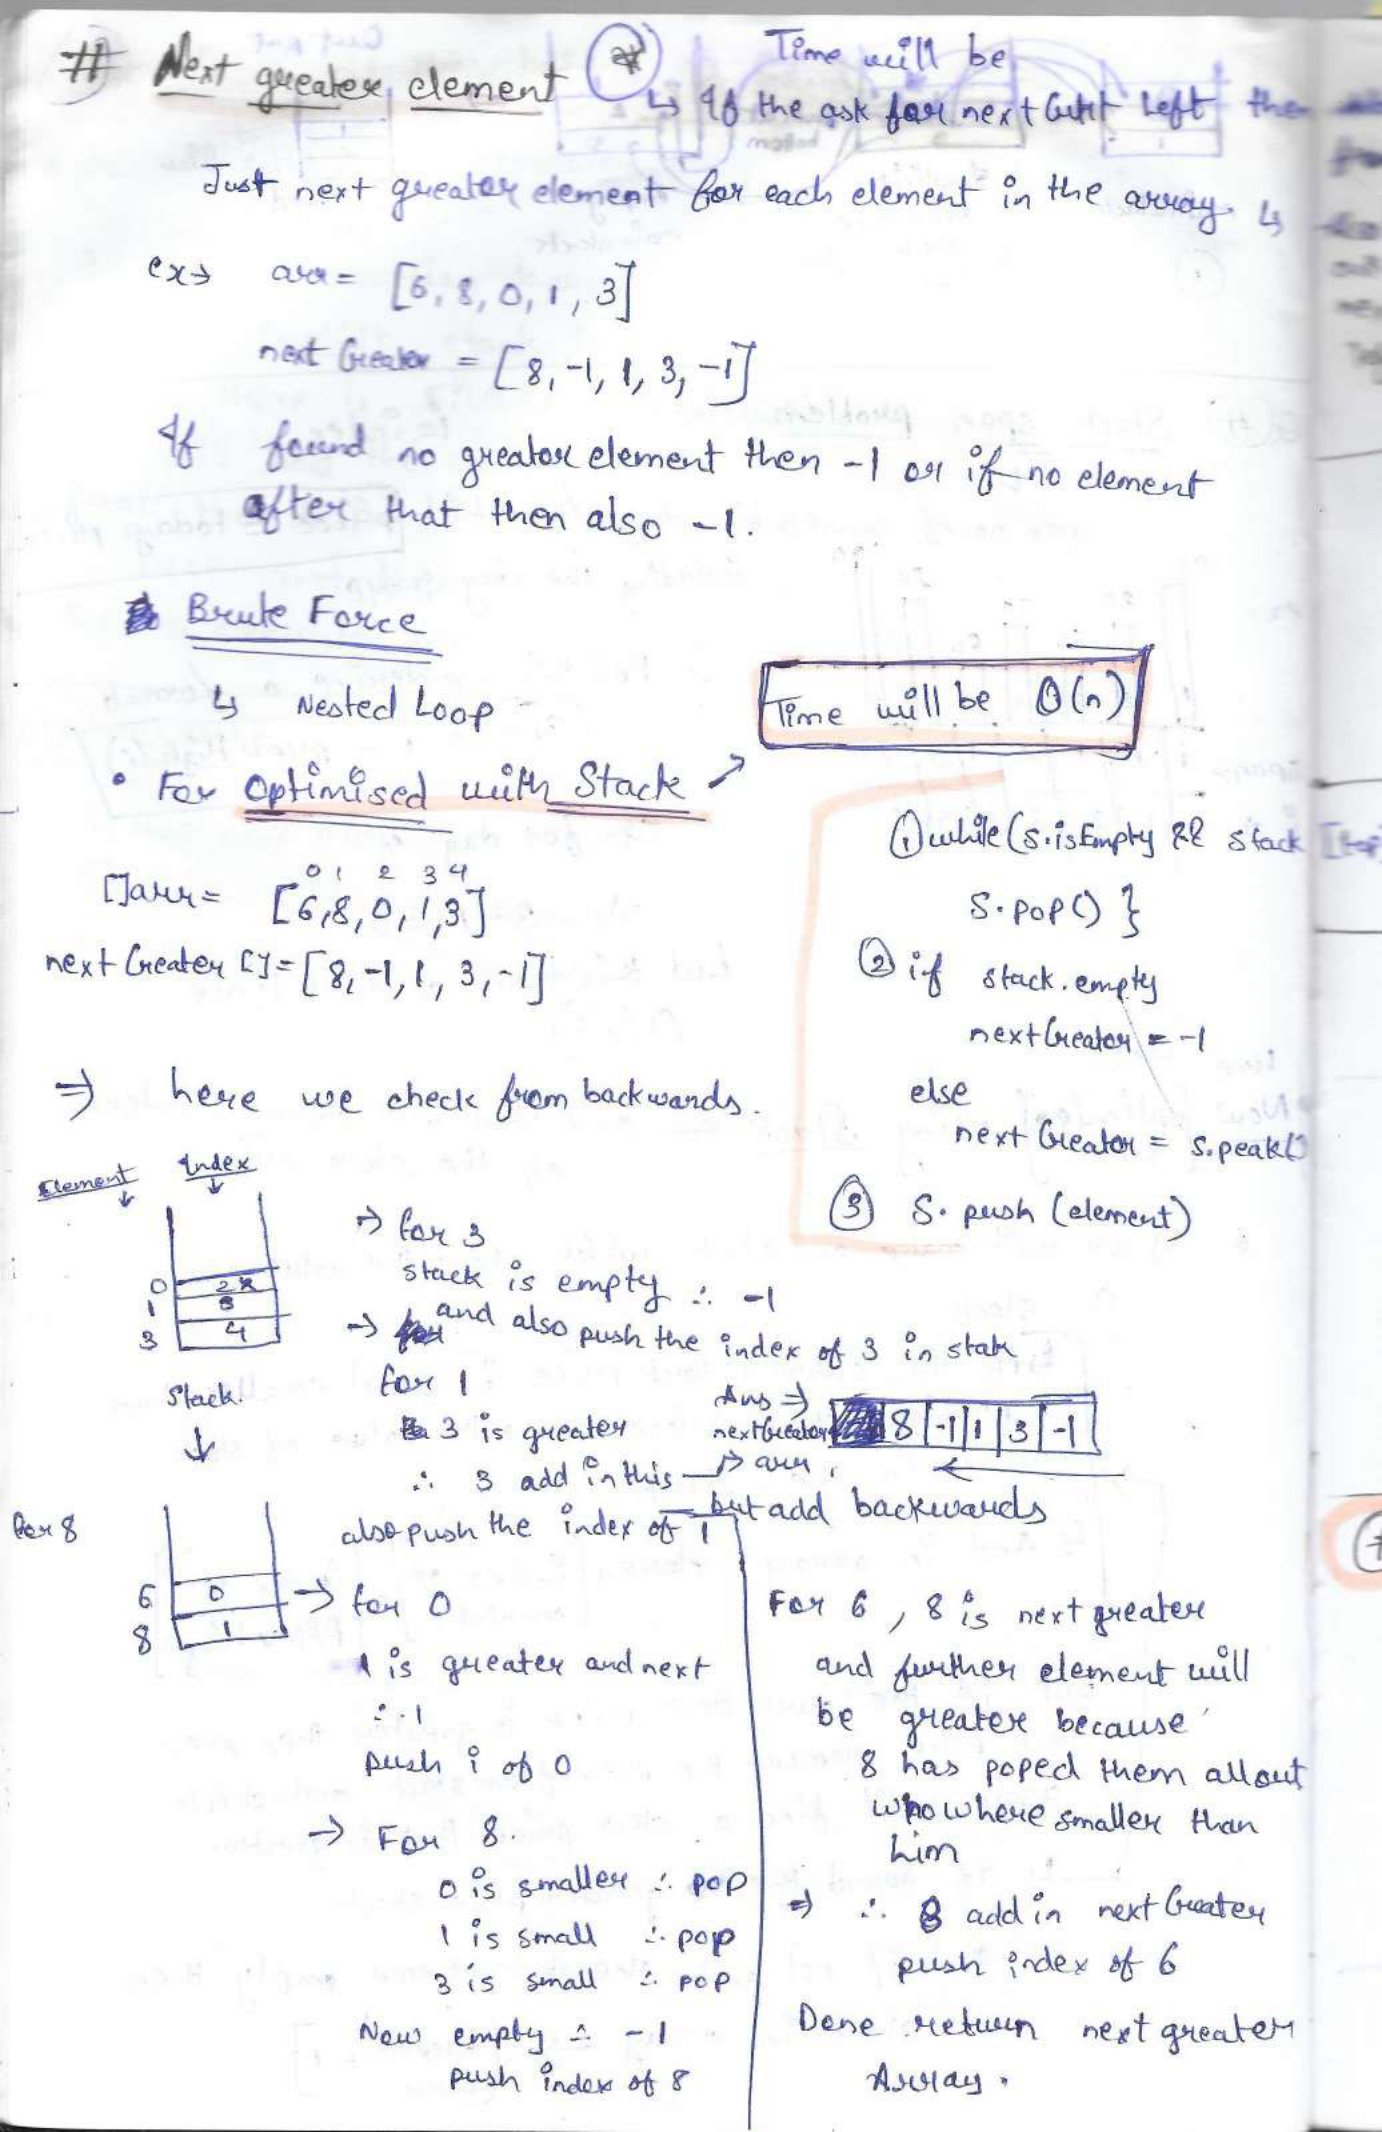 # Next greater element *
Time will be
↳ If the ask for next Left the
Just next greater element for each element in the array. ↳
ex→ arr = [6, 8, 0, 1, 3]
next Greater = [8, -1, 1, 3, -1]
If found no greator element then -1 or if no element
after that then also -1.
Brute Force
↳ Nested Loop
Time will be O(n)
• For Optimised with Stack ↗
0 1 2 3 4
[]arr = [6,8,0,1,3]
next Greater []= [8,-1,1,3,-1]
⇒ here we check from backwards.
① while (s.isEmpty && stack [top]
s.pop() }
② if stack.empty
next Greater = -1
else
next Greater = s.peak()
③ S. push (element)
Element ↓ Index ↓
0 2
1 3
3 4
Stack.
↓
→ for 3
stack is empty ∴ -1
→ and also push the index of 3 in stak
for 1
3 is greater
∴ 3 add in this → arr,
but add backwards
also push the index of 1
Ans ⇒
next Greater 8 | -1 | 1 | 3 | -1
for 8
6 0
8 1
→ for 0
1 is greater and next
∴ 1
push i of 0
→ For 8.
0 is smaller ∴ pop
1 is small ∴ pop
3 is small ∴ pop
Now empty ∴ -1
push index of 8
For 6, 8 is next greater
and further element will
be greater because
8 has poped them all out
who where smaller than
him
⇒ ∴ 8 add in next Greater
push index of 6
Done return next greater
Array.